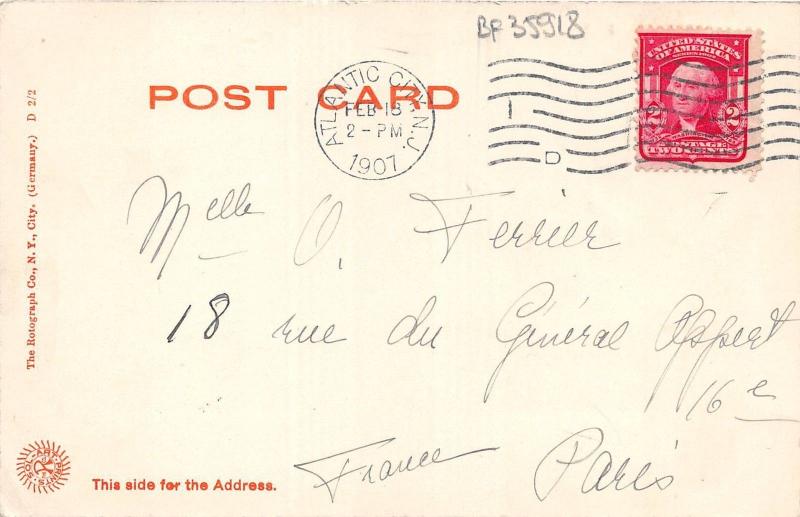 BF 35918
POST CARD
ATLANTIC CITY, N.J.
FEB 18
2-PM
1907
1
D
UNITED STATES
OF AMERICA
SERIES 1902
2 2
WASHINGTON
POSTAGE
TWO CENTS
The Rotograph Co., N. Y., City. (Germany.) D 2/2
Melle O. Ferrier
18 rue du Général Appert
16e
France Paris
SOL-ART PRINTS
This side for the Address.